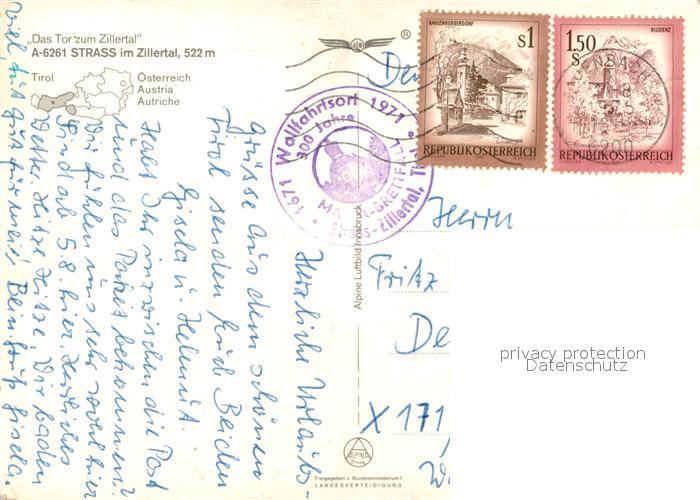 „Das Tor zum Zillertal"
A-6261 STRASS im Zillertal, 522 m
Tirol
Österreich
Austria
Autriche
®
KAHLENBERGERDORF
s1
REPUBLIK ÖSTERREICH
BLUDENZ
1.50
S
REPUBLIK ÖSTERREICH
JENBACH
6200
1671 Wallfahrtsort 1971
300 Jahre
MARIA-BRETTFALL
Strass-Zillertal, Tirol
Herzliche Urlaubs-
grüsse aus dem schönen
Tirol senden Euch Beiden
Gisela u. Helmut.
Habt Ihr inzwischen die Post
und das Paket bekommen?
Wir fühlen uns sehr wohl hier
sind ab 5.8. hier. Herrliches
Wetter. Hitze, Hitze. Wir baden
viel, tut gut für mein Bein. Gruß Gisela.
Herrn
Fritz
De
X 171
Alpine Luftbild Innsbruck
ALPINE
Freigegeben v. Bundesministerium f.
LANDESVERTEIDIGUNG
privacy protection
Datenschutz